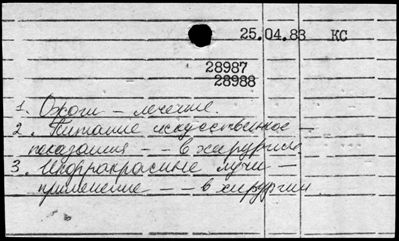 25.04.88 КС
28987
28988
1. Ожоги – лечение.
2. Питание искусственное –
показания – – в хирургии
3. Инфракрасные лучи –
применение – – в хирургии